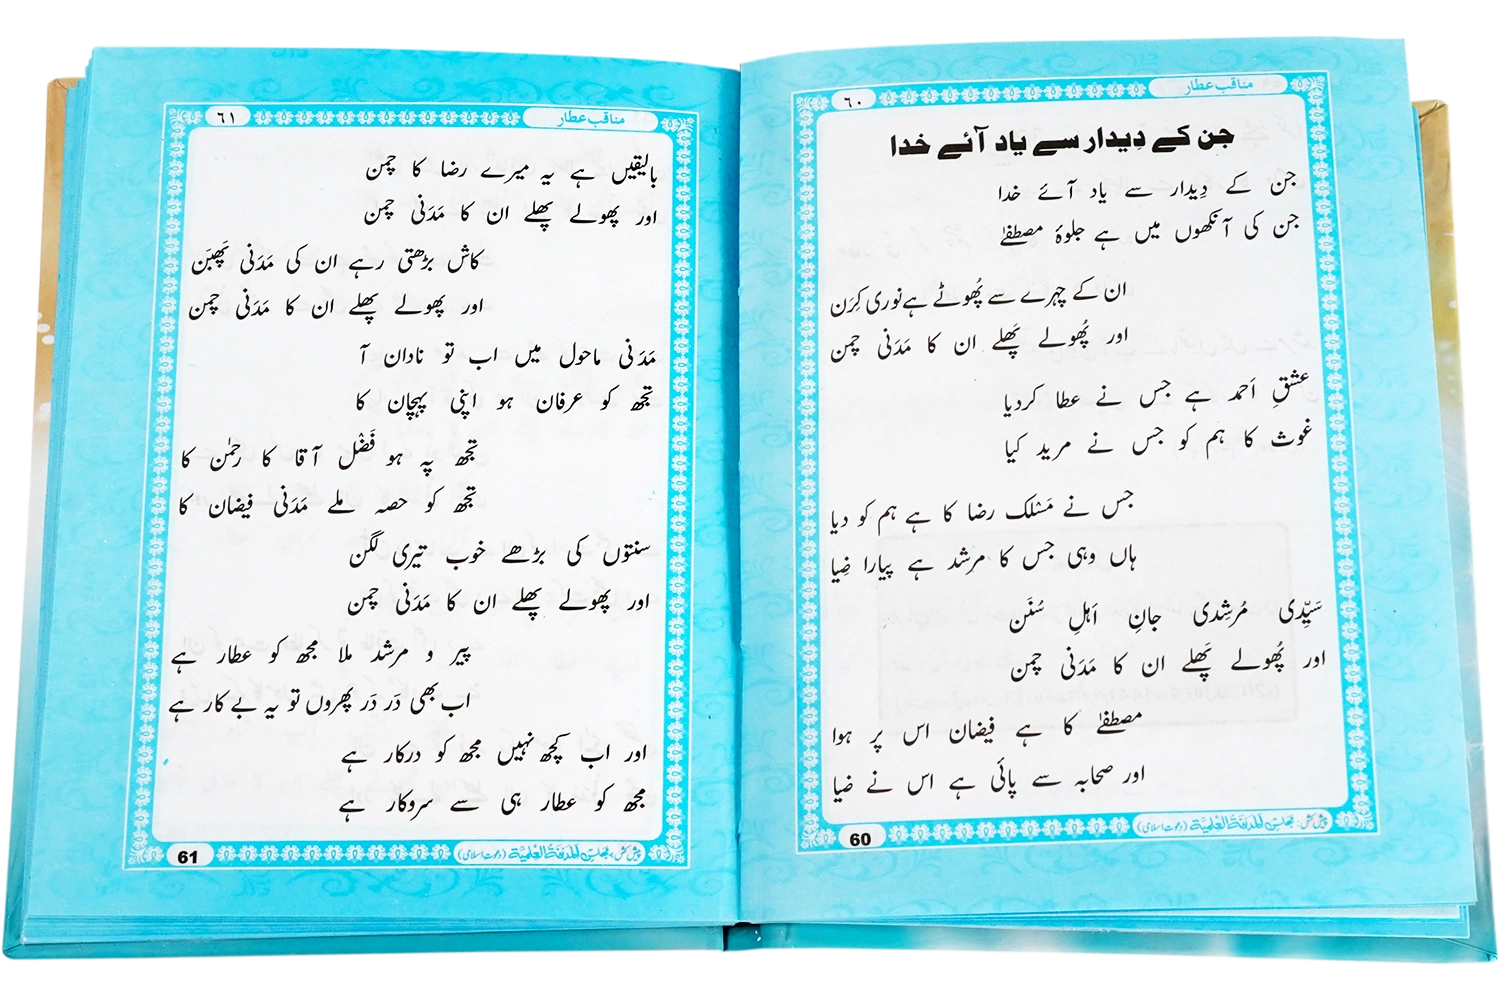 مناقب عطار ٦٠
جن کے دِیدار سے یاد آئے خدا
جن کے دِیدار سے یاد آئے خدا
جن کی آنکھوں میں ہے جلوۂ مصطفےٰ
ان کے چہرے سے پُھوٹے ہے نوری کِرَن
اور پُھولے پَھلے ان کا مَدَنی چمن
عشقِ اَحمد ہے جس نے عطا کردیا
غوث کا ہم کو جس نے مرید کیا
جس نے مَسْلک رضا کا ہے ہم کو دیا
ہاں وہی جس کا مرشد ہے پیارا ضِیا
سَیِّدی مُرشِدی جانِ اَہلِ سُنَن
اور پُھولے پَھلے ان کا مَدَنی چمن
مصطفےٰ کا ہے فیضان اس پر ہوا
اور صحابہ سے پائی ہے اس نے ضیا
پیش کش: مجلس المدینۃ العلمیۃ (دعوت اسلامی) 60
مناقب عطار ٦١
بالیقیں ہے یہ میرے رضا کا چمن
اور پھولے پھلے ان کا مَدَنی چمن
کاش بڑھتی رہے ان کی مَدَنی پَھبَن
اور پھولے پھلے ان کا مَدَنی چمن
مَدَنی ماحول میں اب تو نادان آ
تجھ کو عرفان ہو اپنی پہچان کا
تجھ پہ ہو فَضْل آقا کا رحمٰن کا
تجھ کو حصہ ملے مَدَنی فیضان کا
سنتوں کی بڑھے خوب تیری لگن
اور پھولے پھلے ان کا مَدَنی چمن
پیر و مرشد ملا مجھ کو عطار ہے
اب بھی دَر دَر پھروں تو یہ بے کار ہے
اور اب کچھ نہیں مجھ کو درکار ہے
مجھ کو عطار ہی سے سروکار ہے
پیش کش: مجلس المدینۃ العلمیۃ (دعوت اسلامی) 61